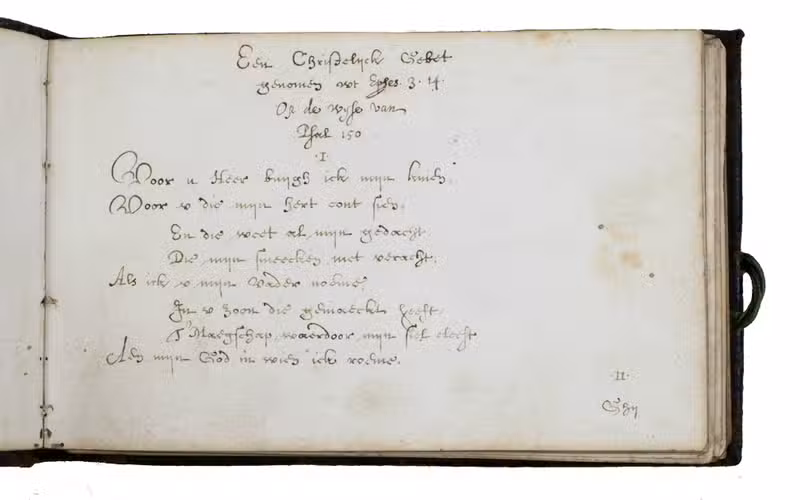 Een Christelijck Gebet
genomen wt Ephes. 3. 14.
Op de wijse van
Psal 150
·I·
Voor u Heer buijgh ick mijn knien.
Voor v die mijn hert cont sien.
En die weet al mijn gedacht.
Die mijn smeecken niet veracht.
Als ick v mijn Vader noeme.
In v zoon die gemaeckt heeft.
T'Maegschap waerdoor mijn siel leeft
Aen mijn God in wien ick roeme.
·II·
Ghij